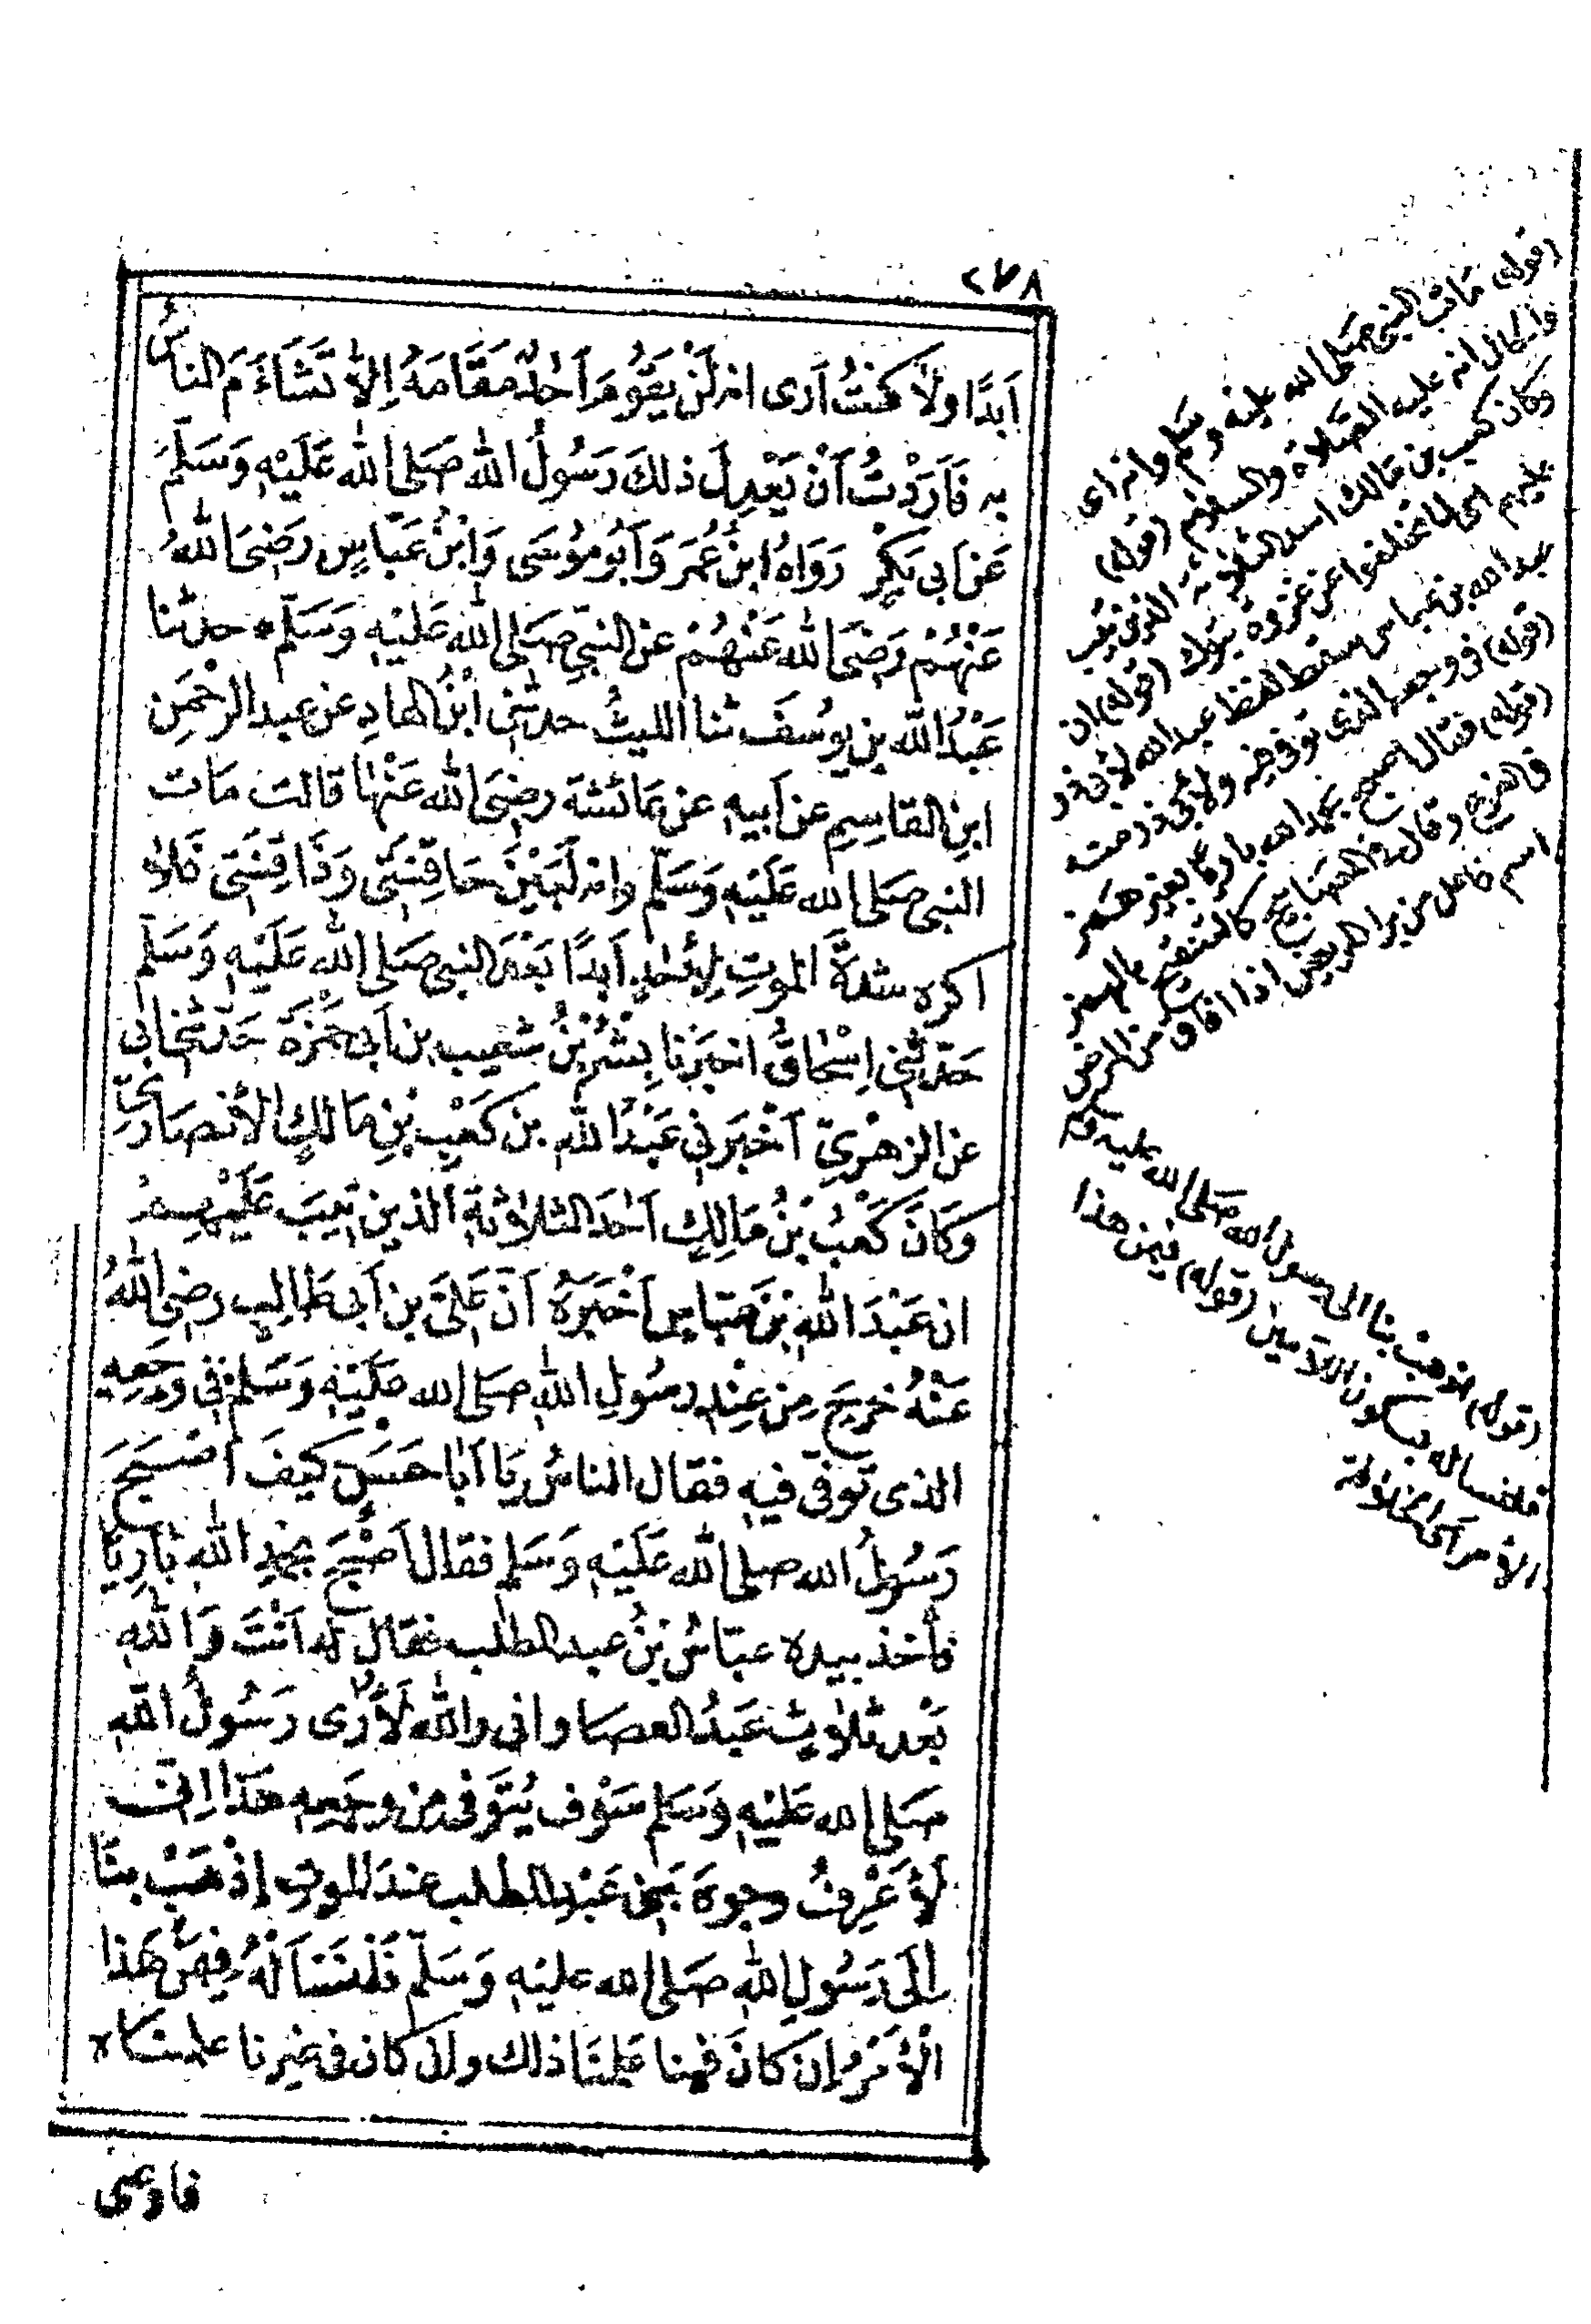 ٢٧٨
اَبَدًا ولَا كنتُ اَرى انه لَنْ يَقُومَ اَحَدٌ مَقَامَهُ اِلَّا تَشَاءَمَ الناسُ
به فَاَرَدْتُ اَنْ يَعْدِلَ ذلكَ رَسُولُ الله صَلى الله عَلَيْهِ وَسَلَّمَ
عَنْ اَبِى بَكْرٍ رَوَاهُ ابنُ عُمَرَ وَاَبُو مُوسَى وَابْنُ عَبَّاسٍ رَضِىَ اللهُ
عَنْهُمْ رَضِىَ الله عَنْهُمْ عن النبىِ صَلى الله عَلَيْهِ وَسَلَّم * حدثنا
عَبْدُ الله بن يوسُفَ ثنا الليثُ حدثنى ابْنُ الهادِ عن عبد الرحْمَنِ
ابنِ القاسِمِ عن اَبيهِ عن عائشة رضِىَ الله عَنْهَا قالت مَات
النبى صَلى الله عَلَيْهِ وَسَلَّم وانه لَبَيْنَ حَاقِنَتِى وَذَاقِنَتِى فَلَا
اكره شدةَ الموتِ لِاَحَدٍ اَبَدًا بَعْدَ النبى صَلى الله عَلَيْهِ وَسَلَّم
حَدَّثنى اِسْحَاقُ اخبَرَنا بِشْرُ بنُ شعيب بن اَبى حَمْزَةَ حَدَّثنى ابى
عن الزهْرِىِّ اَخْبَرَنِى عَبْدُ الله بن كَعْبِ بنِ مَالِكٍ الأنصَارِىُّ
وَكَانَ كَعْبُ بنُ مَالِكٍ اَحَدَ الثلاثَةِ الَّذينَ تِيبَ عَلَيْهِمْ
ان عَبْدَ اللهِ بنَ عَبَّاسٍ اَخْبَرَهُ اَنَّ عَلىَّ بن اَبى طَالِبٍ رضِى اللهُ
عَنْهُ خرَجَ مِن عِنْدِ رسُولِ اللهِ صَلى الله عَلَيْهِ وَسَلم فى وَجَعِهِ
الذى تُوفِّى فيهِ فقال الناسُ يَا اَبَا حَسَنٍ كيفَ اَصْبَحَ
رَسُولُ الله صلى الله عَلَيْهِ وَسَلم فقال اَصْبَحَ بحَمْدِ اللهِ بَارِئًا
فأخذ بيده عبّاسُ بنُ عبد المطلب فقال له اَنْتَ وَاللهِ
بَعْدَ ثلاثٍ عَبدُ العصا وانى والله لَاَرَى رَسُولَ اللهِ
صَلى الله عَلَيْهِ وَسَلم سَوْفَ يُتَوَفى من وجَعِهِ هَذَا اِنى
لَاَعْرِفُ وجوهَ بَنِى عَبْدِ المطلب عندَ الموتِ اِذْهَبْ بنَا
اِلَى رَسُولِ اللهِ صَلى الله عليْهِ وَسَلَّم فَلْنَسْاَلْهُ فِيمَنْ هَذا
الْاَمْرُ اِن كَانَ فِينا عَلِمْنَا ذلك وان كان فى غيرِنا علمنَاه
فاوصى
(قوله) مَات النبى صَلى الله عليْه وسَلم وانه اى
والحال انه عليه الصَّلاة والسلام (قوله)
وكان كعب بن مالك احد الثلاثة الذين تيب
عليهم اى لما تخلفوا عن غزوة تبوك (قوله) ان
عبد الله بن عباس سقط لفظ عبد الله لأبى ذر
(قوله) فى وجعه الذى توفى فيه ولأبى ذر منه
(قوله) فقال اصبح بحمد الله بارئا بغير همز
فى الفرع وقال فى المصابيح كالتنقيح بالهمز
اسم فاعل من برأ المريض اذا افاق من المرض
(قوله) اذهب بنا الى رسول الله صَلى الله عليه وسلم
فلنسأله بسكون اللامين (قوله) فيمن هذا
الأمر اى الخلافة